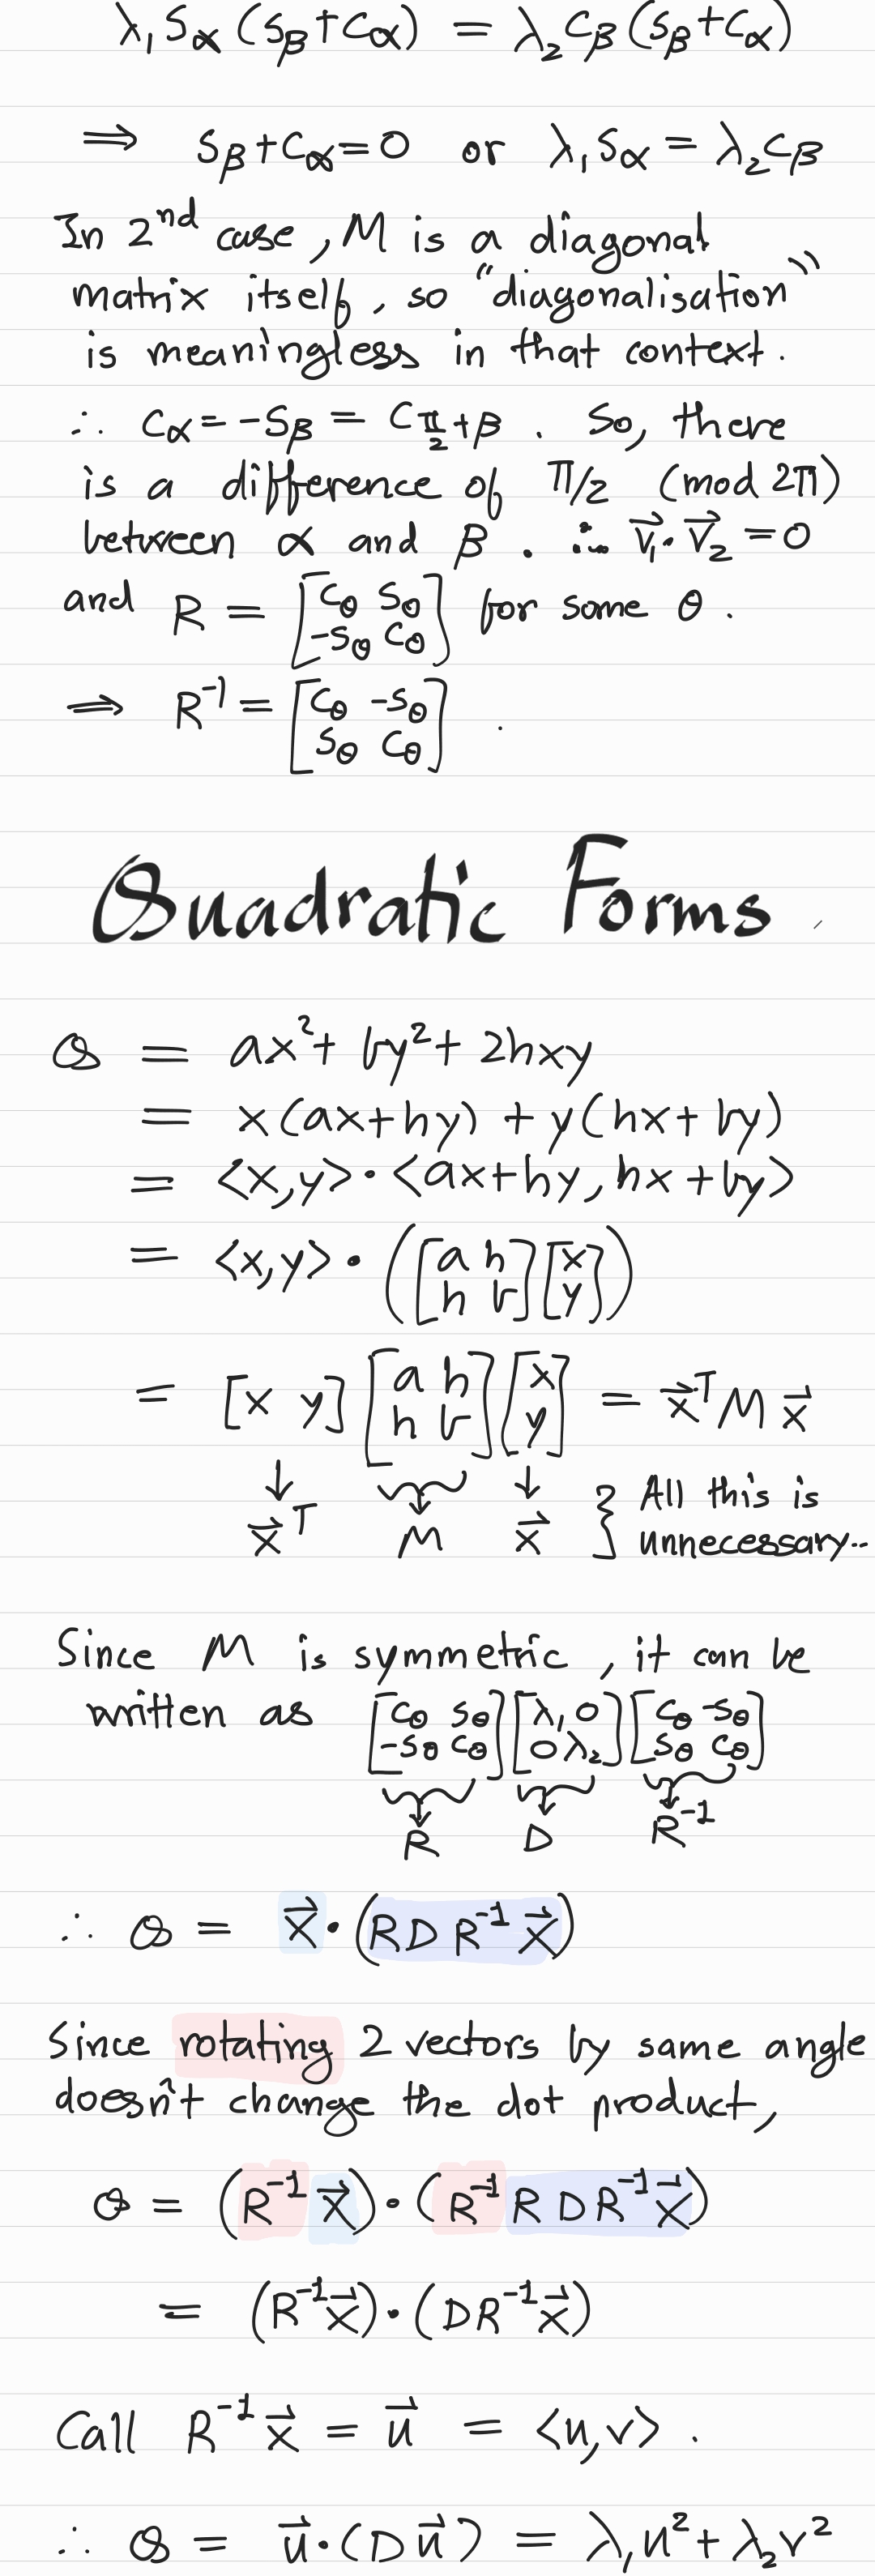 λ₁ S_α (S_β + C_α) = λ₂ C_β (S_β + C_α)
⟹ S_β + C_α = 0 or λ₁ S_α = λ₂ C_β
In 2ⁿᵈ case, M is a diagonal
matrix itself, so "diagonalisation"
is meaningless in that context.
∴ C_α = -S_β = C_{π/2 + β} . So, there
is a difference of π/2 (mod 2π)
between α and β . ∴ v⃗₁·v⃗₂ = 0
and R = [C_θ S_θ; -S_θ C_θ] for some θ .
⟹ R⁻¹ = [C_θ -S_θ; S_θ C_θ] .
Quadratic Forms
Q = ax² + by² + 2hxy
= x(ax+hy) + y(hx+by)
= <x,y> · <ax+hy, hx+by>
= <x,y> · ([a h; h b][x; y])
= [x y][a h; h b][x; y] = x⃗ᵀ M x⃗
↓ ↓ ↓ } All this is
x⃗ᵀ M x⃗ unnecessary..
Since M is symmetric, it can be
written as [C_θ S_θ; -S_θ C_θ][λ₁ 0; 0 λ₂][C_θ -S_θ; S_θ C_θ]
R D R⁻¹
∴ Q = x⃗ · (R D R⁻¹ x⃗)
Since rotating 2 vectors by same angle
doesn't change the dot product,
Q = (R⁻¹ x⃗) · (R⁻¹ R D R⁻¹ x⃗)
= (R⁻¹ x⃗) · (D R⁻¹ x⃗)
Call R⁻¹ x⃗ = u⃗ = <u,v> .
∴ Q = u⃗ · (D u⃗) = λ₁u² + λ₂v²